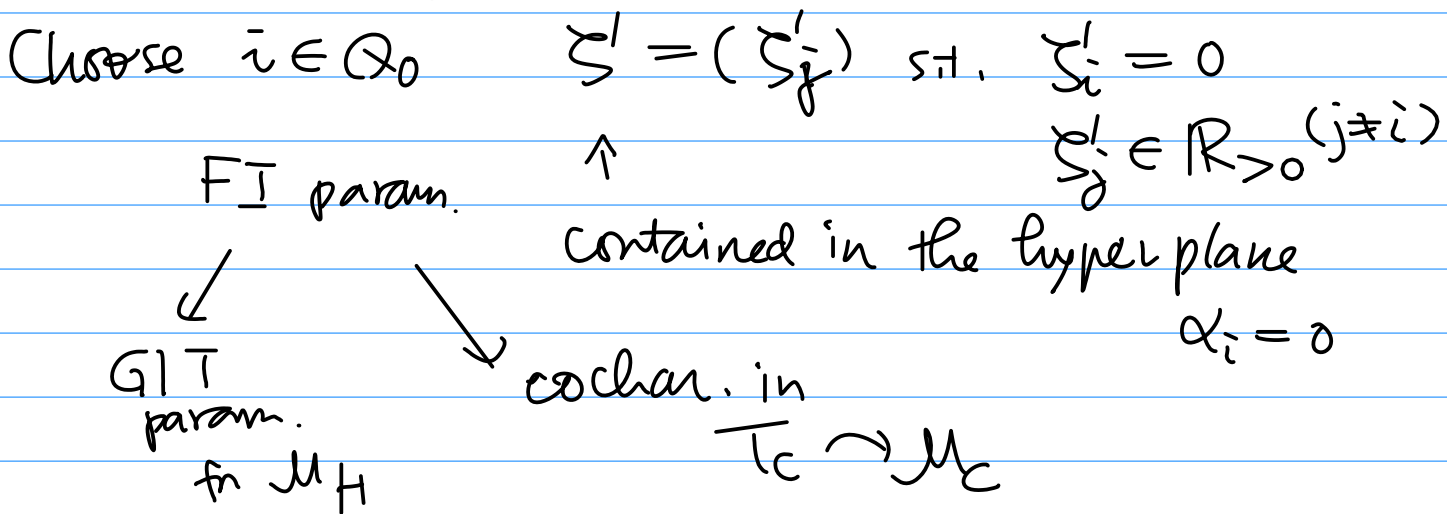 Choose i ∈ Q₀ ζ' = (ζ'_j) s.t. ζ'_i = 0
ζ'_j ∈ ℝ_{>0} (j≠i)
↑
FI param.
contained in the hyperplane
α_i = 0
GIT
param.
for M_H
cochar. in
T_C ↷ M_C